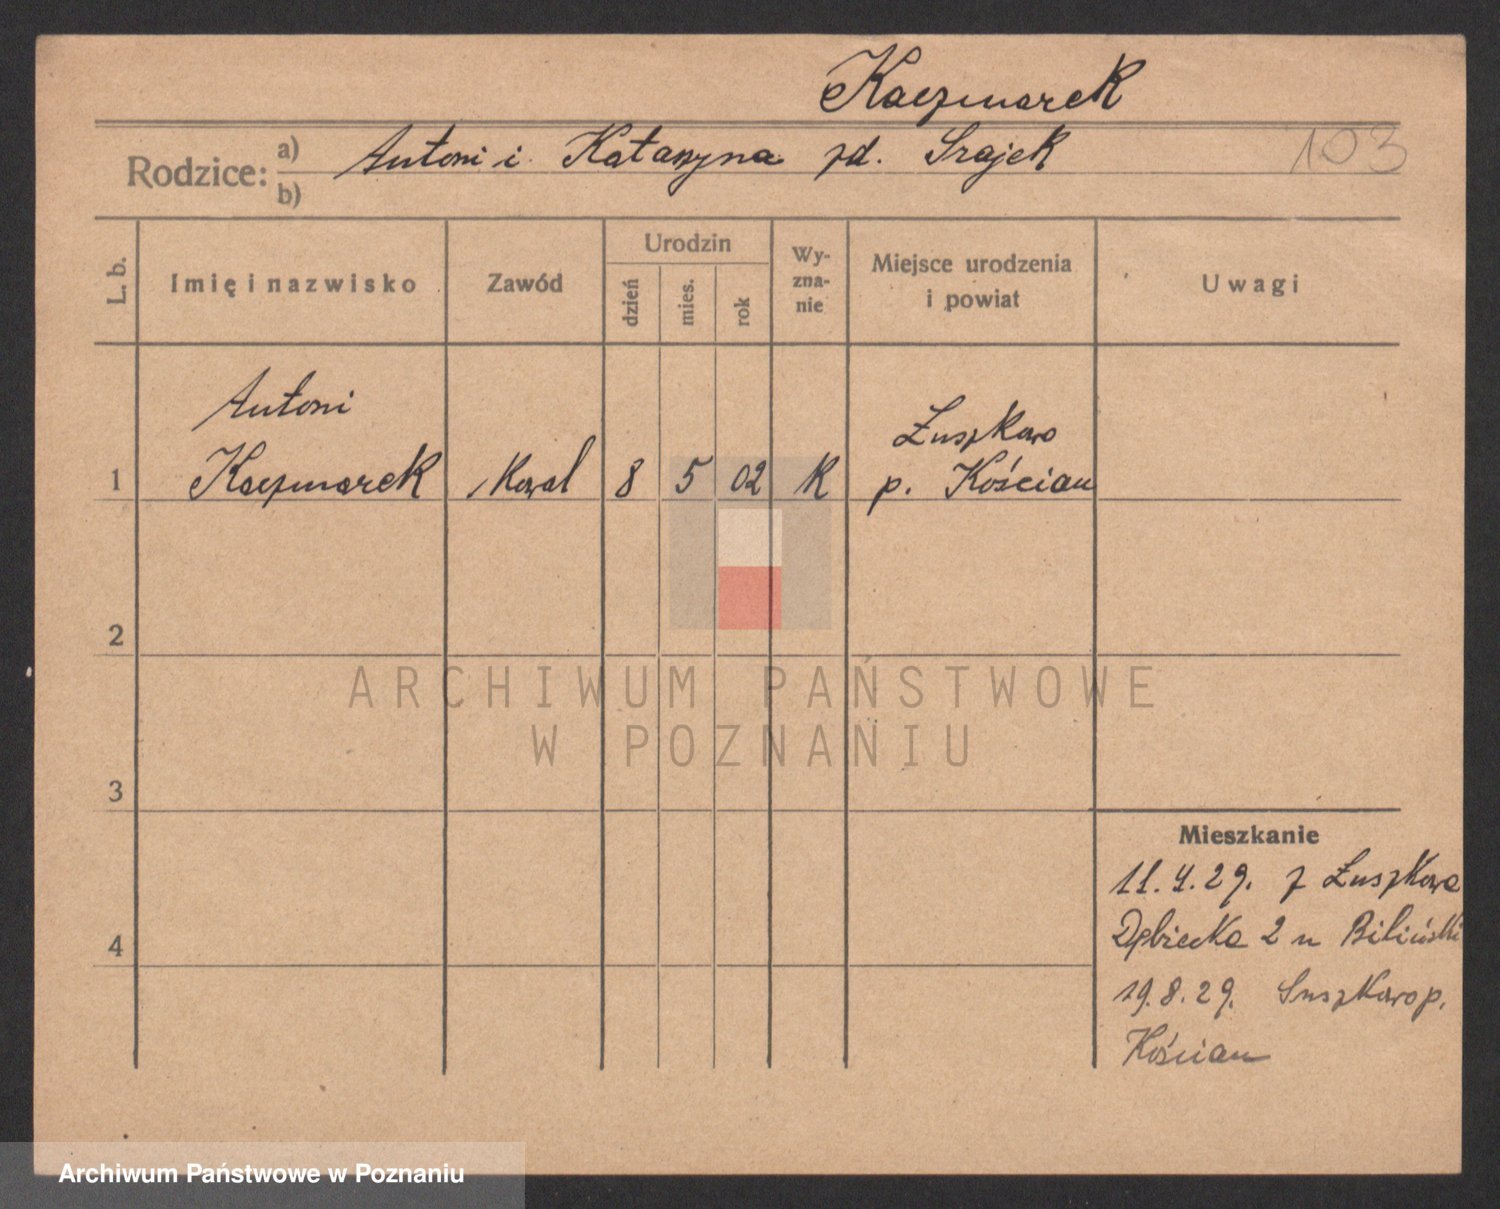 Kaczmarek
103
Rodzice: a) Antoni i Katarzyna zd. Szajek
b)
L. b. Imię i nazwisko Zawód Urodzin dzień mies. rok Wy-zna-nie Miejsce urodzenia i powiat Uwagi
Antoni
1 Kaczmarek Kowal 8 5 02 K Łuszkowo
p. Kościan
2
3
4
Mieszkanie
11.4.29. z Łuszkowa
Dębiecka 2 u Biliński
19.8.29. Łuszkowo p.
Kościan
ARCHIWUM PAŃSTWOWE
W POZNANIU
Archiwum Państwowe w Poznaniu